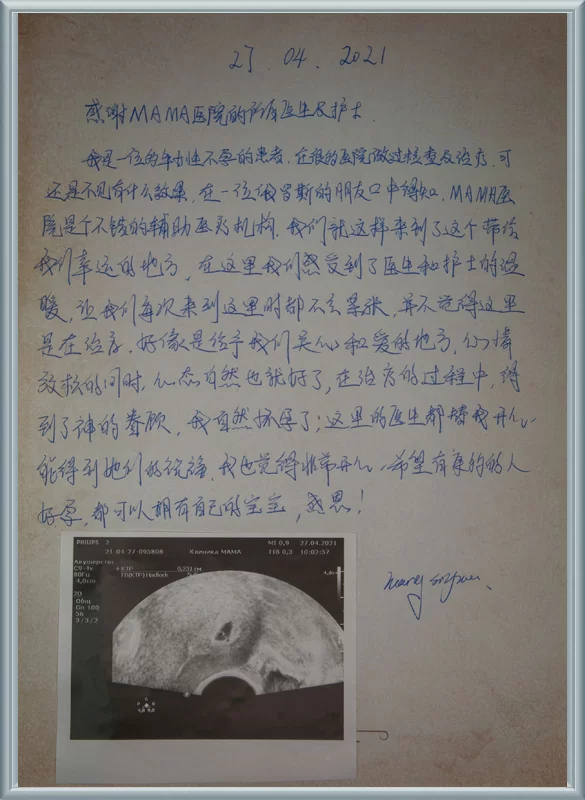 27. 04. 2021
感谢MAMA医院的所有医生及护士.
我是一位的年女性不孕的患者, 在很的医院做过检查及治疗, 可
还是不见有什么效果, 在一位俄罗斯的朋友口中得知, MAMA医
院是个不错的辅助医疗机构. 我们就这样来到了这个带给
我们幸运的地方, 在这里我们感受到了医生和护士的温
暖, 让我们每次来到这里时都不会紧张, 并不觉得这里
是在治疗. 好像是给予我们关心和爱的地方, 心情
放松的同时, 心态自然也就好了, 在治疗的过程中, 得
到了神的眷顾, 我自然怀孕了; 这里的医生都替我开心
能得到她们的祝福, 我也觉得非常开心. 希望有集的的人
好孕, 都可以拥有自己的宝宝, 感恩!
PHILIPS
MI 0,9 27.04.2021
21-04-27-095808 Клиника МАМА TIB 0,3 10:02:57
Акушерство
C9-4v
80Гц
4,0см
+ КТР 0,231 см
ГБ(КТР) Hadlock
2D
Общ
Gn 100
56
3/3/2